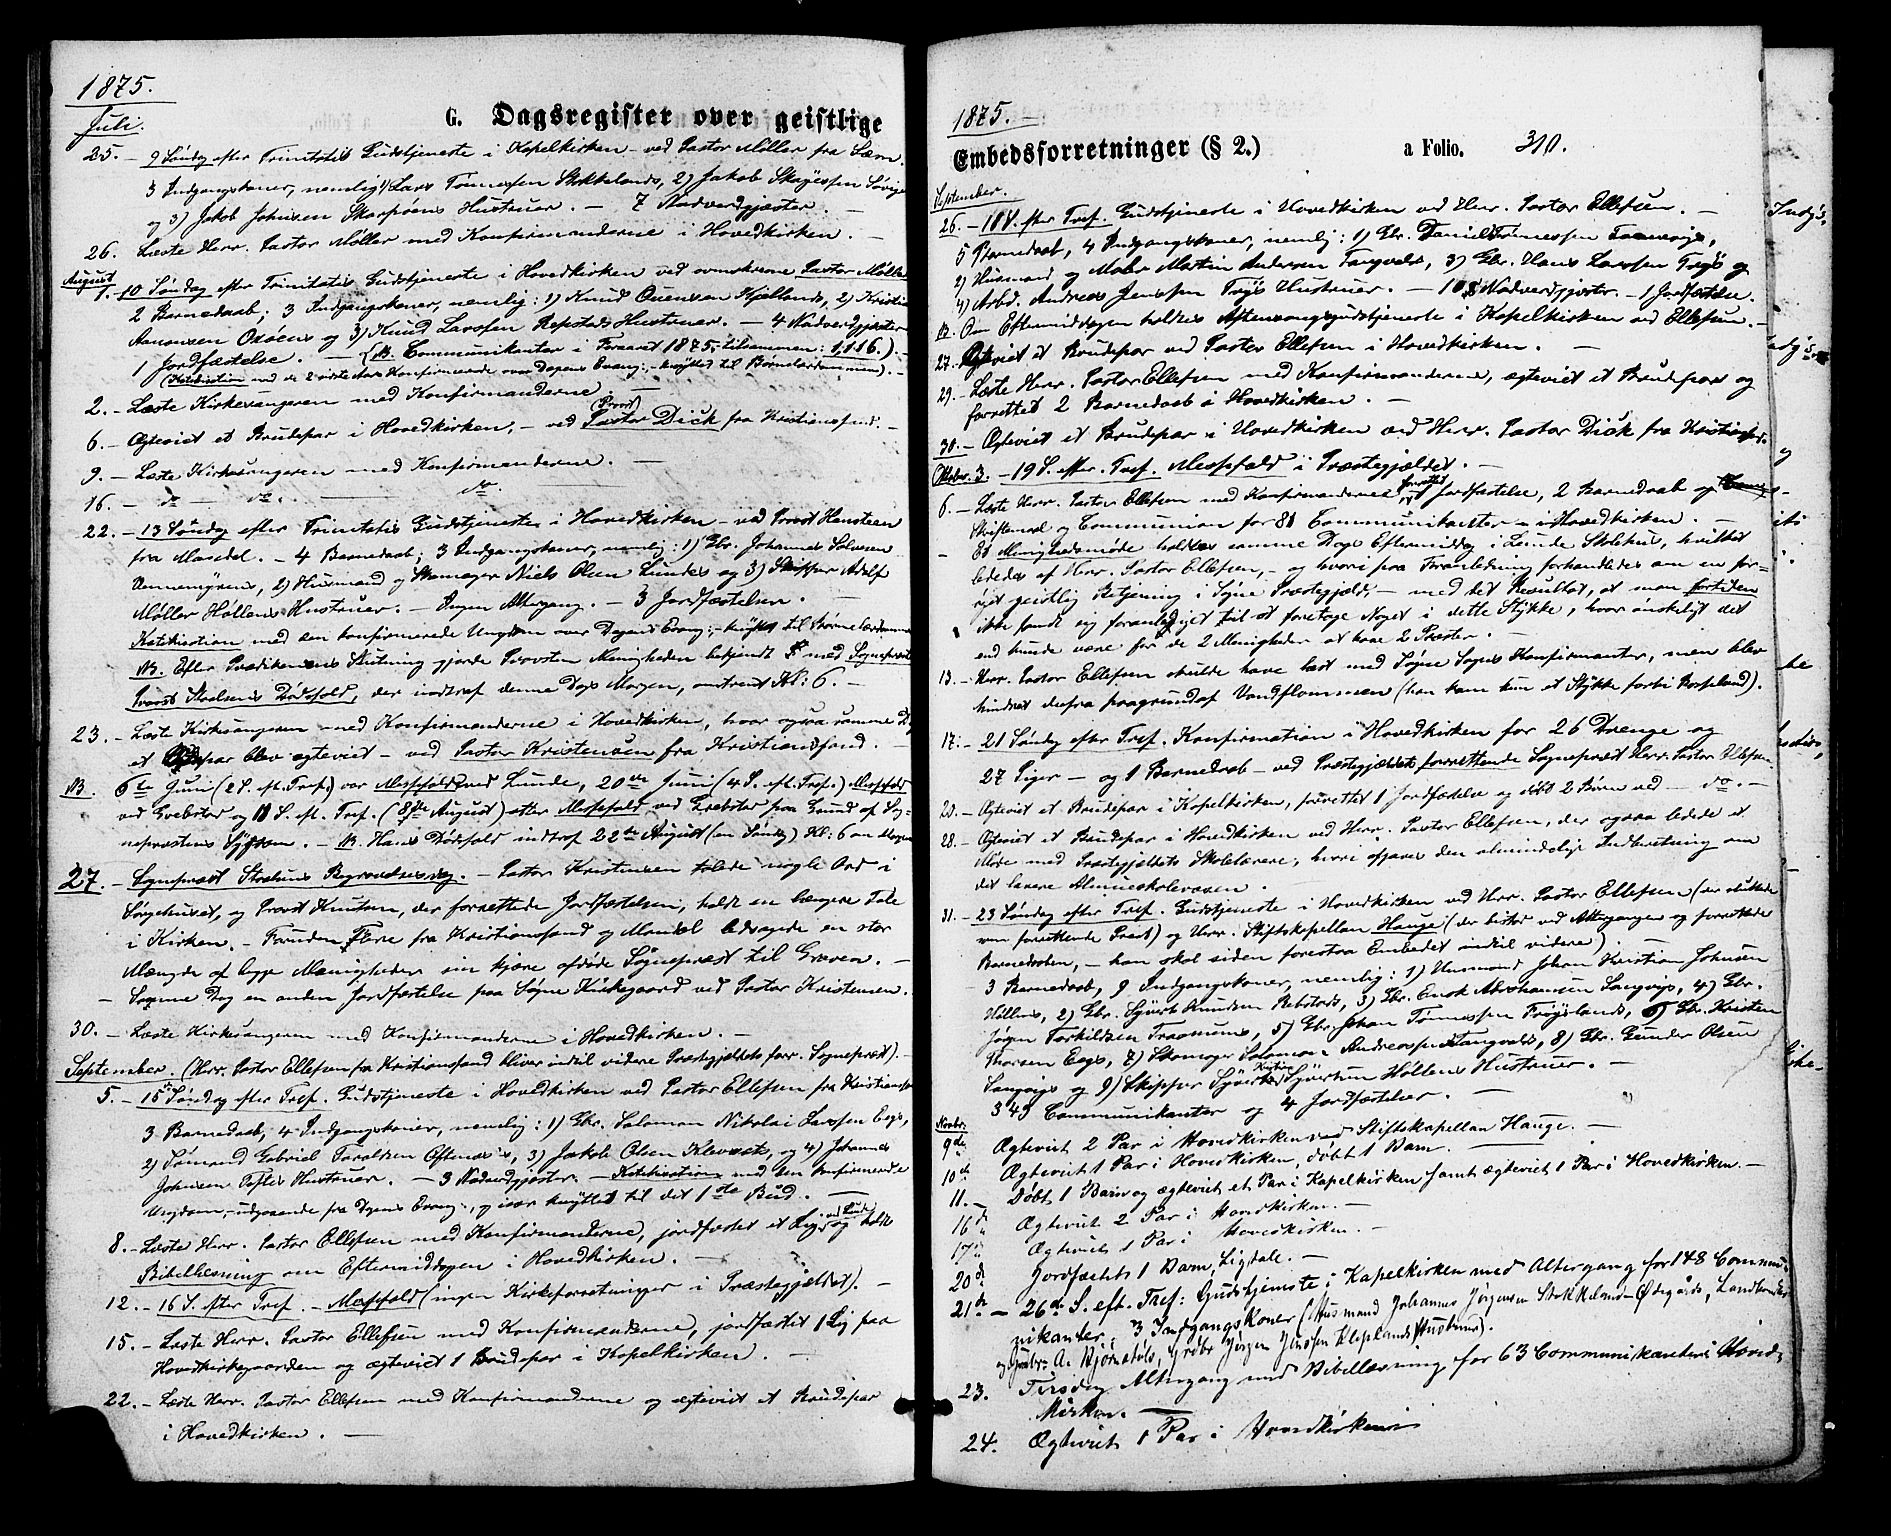 1875.
Juli.
G. Dagsregister over geistlige
25. – 9 Søndag efter Trinitatis Gudstjeneste i Kapelkirken – ved Pastor Møller fra
3 Indgangskoner, nemlig 1) Lars Tønnessen Stokkelands, 2) Jakob
og 3) Jakob Johnsen Hustruer. – 7 Nadverdgjæster. –
26. Læste Herr. Pastor Møller med Konfirmanderne i Hovedkirken. –
August
1. – 10 Søndag efter Trinitatis Gudstjeneste i Hovedkirken ved Pastor Møller
2 Barnedaab; 3 Indgangskoner, nemlig: 1) Knud Ouensen Kjellands, 2)
Aanonsen og 3) Knud Larssen Repstads Hustruer. – 4 Nadverdgjæster
1 Jordfæstelse. – (NB. Communikanter i Foraaret 1875 tilsammen: 1,116.) –
(Katekisation med de Konfirmerede over Dagens Evang: – knyttet til Børnelærdommen). –
2. – Læste Kirkesangeren med Konfirmanderne –
6. – Ægteviet et Brudepar i Hovedkirken, – ved (Provst) Pastor Dick fra Kristianssand. –
9. – Læste Kirkesangeren med Konfirmanderne. –
16. – do – do. do.
22. – 13 Søndag efter Trinitatis Gudstjeneste i Hovedkirken – ved Provst Hansteen
fra Mandal. – 4 Barnedaab; 3 Indgangskoner, nemlig: 1) Gbr. Johannes Salvesen
2) Husmand og Skomager Niels Olsen Lundes og 3) Skipper Adolf
Møller Høllens Hustruer. – Ingen Altergang. – 3 Jordfæstelser. –
Katekisation med den konfirmerede Ungdom over Dagens Evang: – knyttet til Børnelærdommen
NB. Efter Prædikenens Slutning gjorde Provsten Menigheden bekjendt med Sognepræst
Provst Dødsfald, der indtraf denne Dags Morgen, omtrent Kl: 6. –
23. – Læste Kirkesangeren med Konfirmanderne i Hovedkirken, hvor ogsaa samme Dag
et par blev ægteviet – ved Pastor Kristensen fra Kristianssand. –
NB. 6te Juni (2 S. eft. Tref.) var Messefald ved Lunde, 20de Juni (4 S. eft. Tref.) Messefald
ved Grebstad og 11 S. ef. Tref. (8de August) atter Messefald ved Grebstad paa Grund af Sog-
nepræstens Sygdom. – NB. Hans Dødsfald indtraf 22de August (en Søndag) Kl: 6 om Morgen
27. – Sognepræst Begravelsesdag. – Pastor Kristensen talede nogle Ord i
Sørgehuset, og Provst Knutsen, der forrettede Jordfæstelsen, holdt en længere Tale
i Kirken. – Foruden Flere fra Kristianssand og Mandal ledsagede en stor
Mængde af begge Menigheder sin kjære afdøde Sognepræst til Graven. –
– Samme Dag en anden Jordfæstelse paa Søgne Kirkegaard ved Pastor Kristensen.
30. – Læste Kirkesangeren med Konfirmanderne i Hovedkirken. –
September. (Herr. Pastor Ellefsen fra Kristianssand bliver indtil videre Præstegjældets forr. Sognepræst). –
5. – 15de Søndag efter Tref. Gudstjeneste i Hovedkirken ved Pastor Ellefsen fra Kristianssand
3 Barnedaab, 4 Indgangskoner, nemlig: 1) Gbr. Salomon Nikolai Larssen Eegs,
2) Sømand Gabriel Taraldsen 3) Jakob Olsen og 4) Johannes
Johnsen Toftes Hustruer. – 3 Nadverdgjæster. – Katekisation med den konfirmerede
Ungdom, – udgaaende fra Dagens Evang: knyttet til det 1ste Bud. –
8. – Læste Herr. Pastor Ellefsen med Konfirmanderne, jordfæstet et Lig ved Lunde og holdt
Bibellæsning om Eftermiddagen i Hovedkirken. –
12. – 16 S. efter Tref. – Messefald (ingen Kirkeforretninger i Præstegjældet). –
15. – Læste Herr. Pastor Ellefsen med Konfirmanderne, jordfæstet 1 Lig paa
Hovedkirkegaarden og ægteviet 1 Brudepar i Kapelkirken. –
22. – Læste Herr. Pastor Ellefsen med Konfirmanderne og ægteviet et Brudepar
i Hovedkirken. –
1875. –
Embedsforretninger (§ 2.) a Folio. 310.
September.
26. – 18 S. efter Tref. Gudstjeneste i Hovedkirken ved Herr. Pastor Ellefsen. –
5 Barnedaab, 4 Indgangskoner, nemlig: 1) Gbr. Daniel Tønnessen
2) Husmand og Maler Martin Andersen Tangvals, 3) Gbr. Hans Larssen Trys og
4) Arbd. Andreas Jenssen Trys Hustruer. – Nadverdgjæster. – 1 Jordfæstelse.
NB. Om Eftermiddagen holdtes Aftensangsgudstjeneste i Kapelkirken ved Ellefsen. –
27. Ægteviet et Brudepar ved Pastor Ellefsen i Hovedkirken. –
29. – Læste Herr. Pastor Ellefsen med Konfirmanderne, ægteviet et Brudepar og
forrettet 2 Barnedaab i Hovedkirken. –
30. – Ægteviet et Brudepar i Hovedkirken ved Herr. Pastor Dick fra Kristianss.
Oktober. 3. – 19 S. efter. Tref. Messefald i Præstegjældet. –
6. – Læste Herr. Pastor Ellefsen med Konfirmanderne, forrettet 1 Jordfæstelse, 2 Barnedaab og
Skriftemaal og Communion for 81 Communikanter – i Hovedkirken. –
– Et Menighedsmøde holdtes samme Dags Eftermiddag i Lunde Skolehus, hvilket
lededes af Herr. Pastor Ellefsen, – og hvori paa Foranledning forhandledes om en for-
øget geistlig Betjening i Søgne Præstegjæld, – med det Resultat, at man fortiden
ikke fandt sig foranlediget til at foretage Noget i dette Stykke, hvor ønskeligt det
end kunde være for de 2 Menigheder at have 2 Præster. –
13. – Herr. Pastor Ellefsen skulde have læst med Søgne Sogns Konfirmanter, men blev
hindret derfra paagrund af Vandflommen (han kam kun et Stykke forbi
17. – 21 Søndag efter Tref. Konfirmation i Hovedkirken for 26 Drenge og
27 Piger – og 1 Barnedaab – ved Præstegjældets forrettende Sognepræst Herr. Pastor Ellefsen
20. – Ægteviet et Brudepar i Kapelkirken, forrettet 1 Jordfæstelse og døbt 2 Børn ved – do. –
28. – Ægteviet et Brudepar i Hovedkirken ved Herr. Pastor Ellefsen, der ogsaa ledede et
Møde med Præstegjældets Skolelærere, hvori afgaves den almindelige Indberetning om
det lavere Almueskolevæsen. –
31. – 23 Søndag efter Tref. Gudstjeneste i Hovedkirken ved Herr. Pastor Ellefsen (der sluttede
som forrettende Præst) og Herr. Stiftskapellan Hauge (der bistod ved Altergangen og forrettede
Barnedaaben, – han skal siden forestaa Embedet indtil videre). –
3 Barnedaab, 9 Indgangskoner, nemlig: 1) Husmand Johan Kristian Johnsen
Høllens, 2) Gbr. Syvert Knudsen Repstads, 3) Gbr. Enok Abrahamsen Langvigs, 4) Gbr.
Jørgen Torkildsen 5) Gbr. Johan Tønnessen Frøyslands, 6) Gbr. Kristen
Thorsen Eegs, 7) Skomager Salomon Andreassen Tangvals, 8) Gbr. Gunder Olsen
Langvigs og 9) Skipper Syvert Kristian Syvertsen Høllens Hustruer. –
343 Communikanter og 4 Jordfæstelser. –
Novbr:
9de Ægteviet 2 Par i Hovedkirken ved Stiftskapellan Hauge. –
10de Ægteviet 1 Par i Hovedkirken, døbt 1 Barn. –
11. – Døbt 1 Barn og ægteviet et Par i Kapelkirken samt ægteviet 1 Par i Hovedkirken. –
16d Ægteviet 2 Par i Hovedkirken. –
17d Ægteviet 1 Par i Hovedkirken. –
20d Jordfæstet 1 Barn, Ligtale. –
21de – 26de S. eft. Tref: Gudstjeneste i Kapelkirken med Altergang for 148 Commu-
nikanter, 3 Indgangskoner (Husmand Johannes Jørgensen Stokkeland-Ødegårds,
og Gaardbr. A. Bjørnstøls, Grdbr Jørgen Jenssen Kleplands Hustruer).
23. Tirsdag Altergang med Bibellæsning for 63 Communikanter i Hoved-
kirken. –
24. Ægteviet 1 Par i Hovedkirken